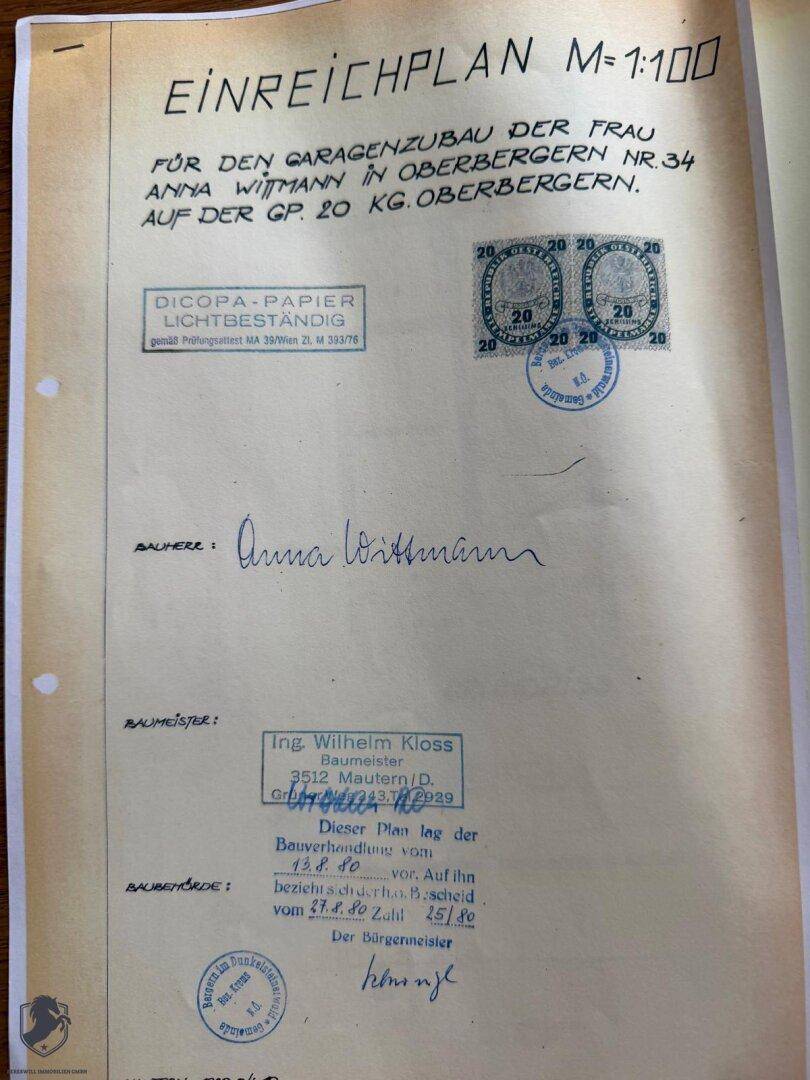 EINREICHPLAN M=1:100
FÜR DEN GARAGENZUBAU DER FRAU
ANNA WITTMANN IN OBERBERGERN NR.34
AUF DER GP. 20 KG. OBERBERGERN.
DICOPA-PAPIER
LICHTBESTÄNDIG
gemäß Prüfungsattest MA 39/Wien Zl. M 393/76
20 20 20 20
REPUBLIK OESTERREICH
20
SCHILLING
STEMPELMARKE
REPUBLIK OESTERREICH
20
SCHILLING
STEMPELMARKE
20 20
Bez. Krems
N.Ö.
Gemeinde
BAUHERR: Anna Wittmann
BAUMEISTER:
Ing. Wilhelm Kloss
Baumeister
3512 Mautern/D.
Grüner Weg 243, Tel. 2929
Dieser Plan lag der
Bauverhandlung vom
13.8.80 vor. Auf ihn
BAUBEHÖRDE: bezieht sich der h.o. Bescheid
vom 27.8.80 Zahl 25/80
Der Bürgermeister
Bergern im Dunkelsteinerwald
Bez. Krems
N.Ö.
Gemeinde